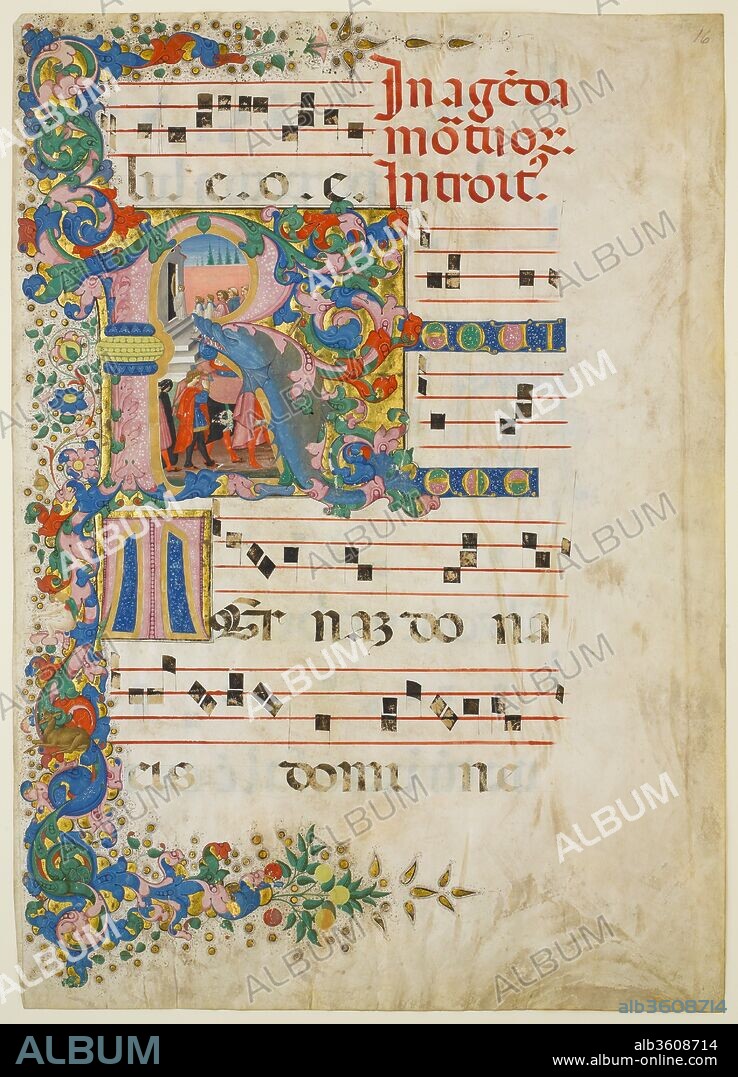 16
In agēda
mōrtuoꝝ.
Introit'.
lu. e. o. e.
REQUI
EM E
TEr naʒ do na
eis domine
ALBUM
alb3608714
ALBUM
alb3608714
www.album-online.com